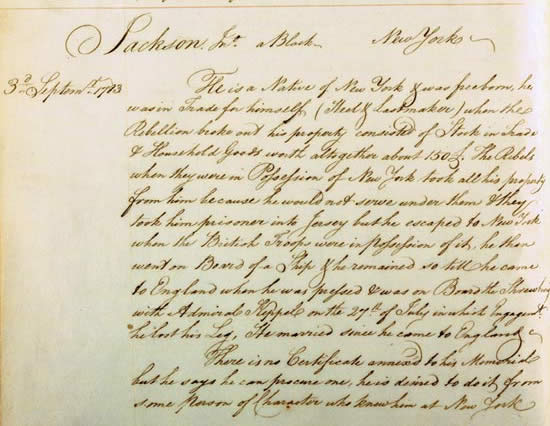 Jackson, Jno. a Black New York
3d. Septemr. 1783
He is a Native of New York & was freeborn, he
was in Trade for himself (Heel & Lastmaker) when the
Rebellion broke out his property consisted of Stock in Trade
& Household Goods worth altogether about 150£. The Rebels
when they were in Possession of New York took all his property
from him because he would not serve under them & they
took him prisoner into Jersey but he escaped to New York
when the British Troops were in Possession of it, he then
went on Board of a Ship & he remained so till he came
to England when he was pressed & was on Board the Shrewsbury
with Admiral Keppel on the 27th. of July in which Engagemt.
he lost his Leg, He married since he came to England
There is no Certificate annexed to his Memorial
but he says he can procure one, he is desired to do it from
some Person of Character who knew him at New York